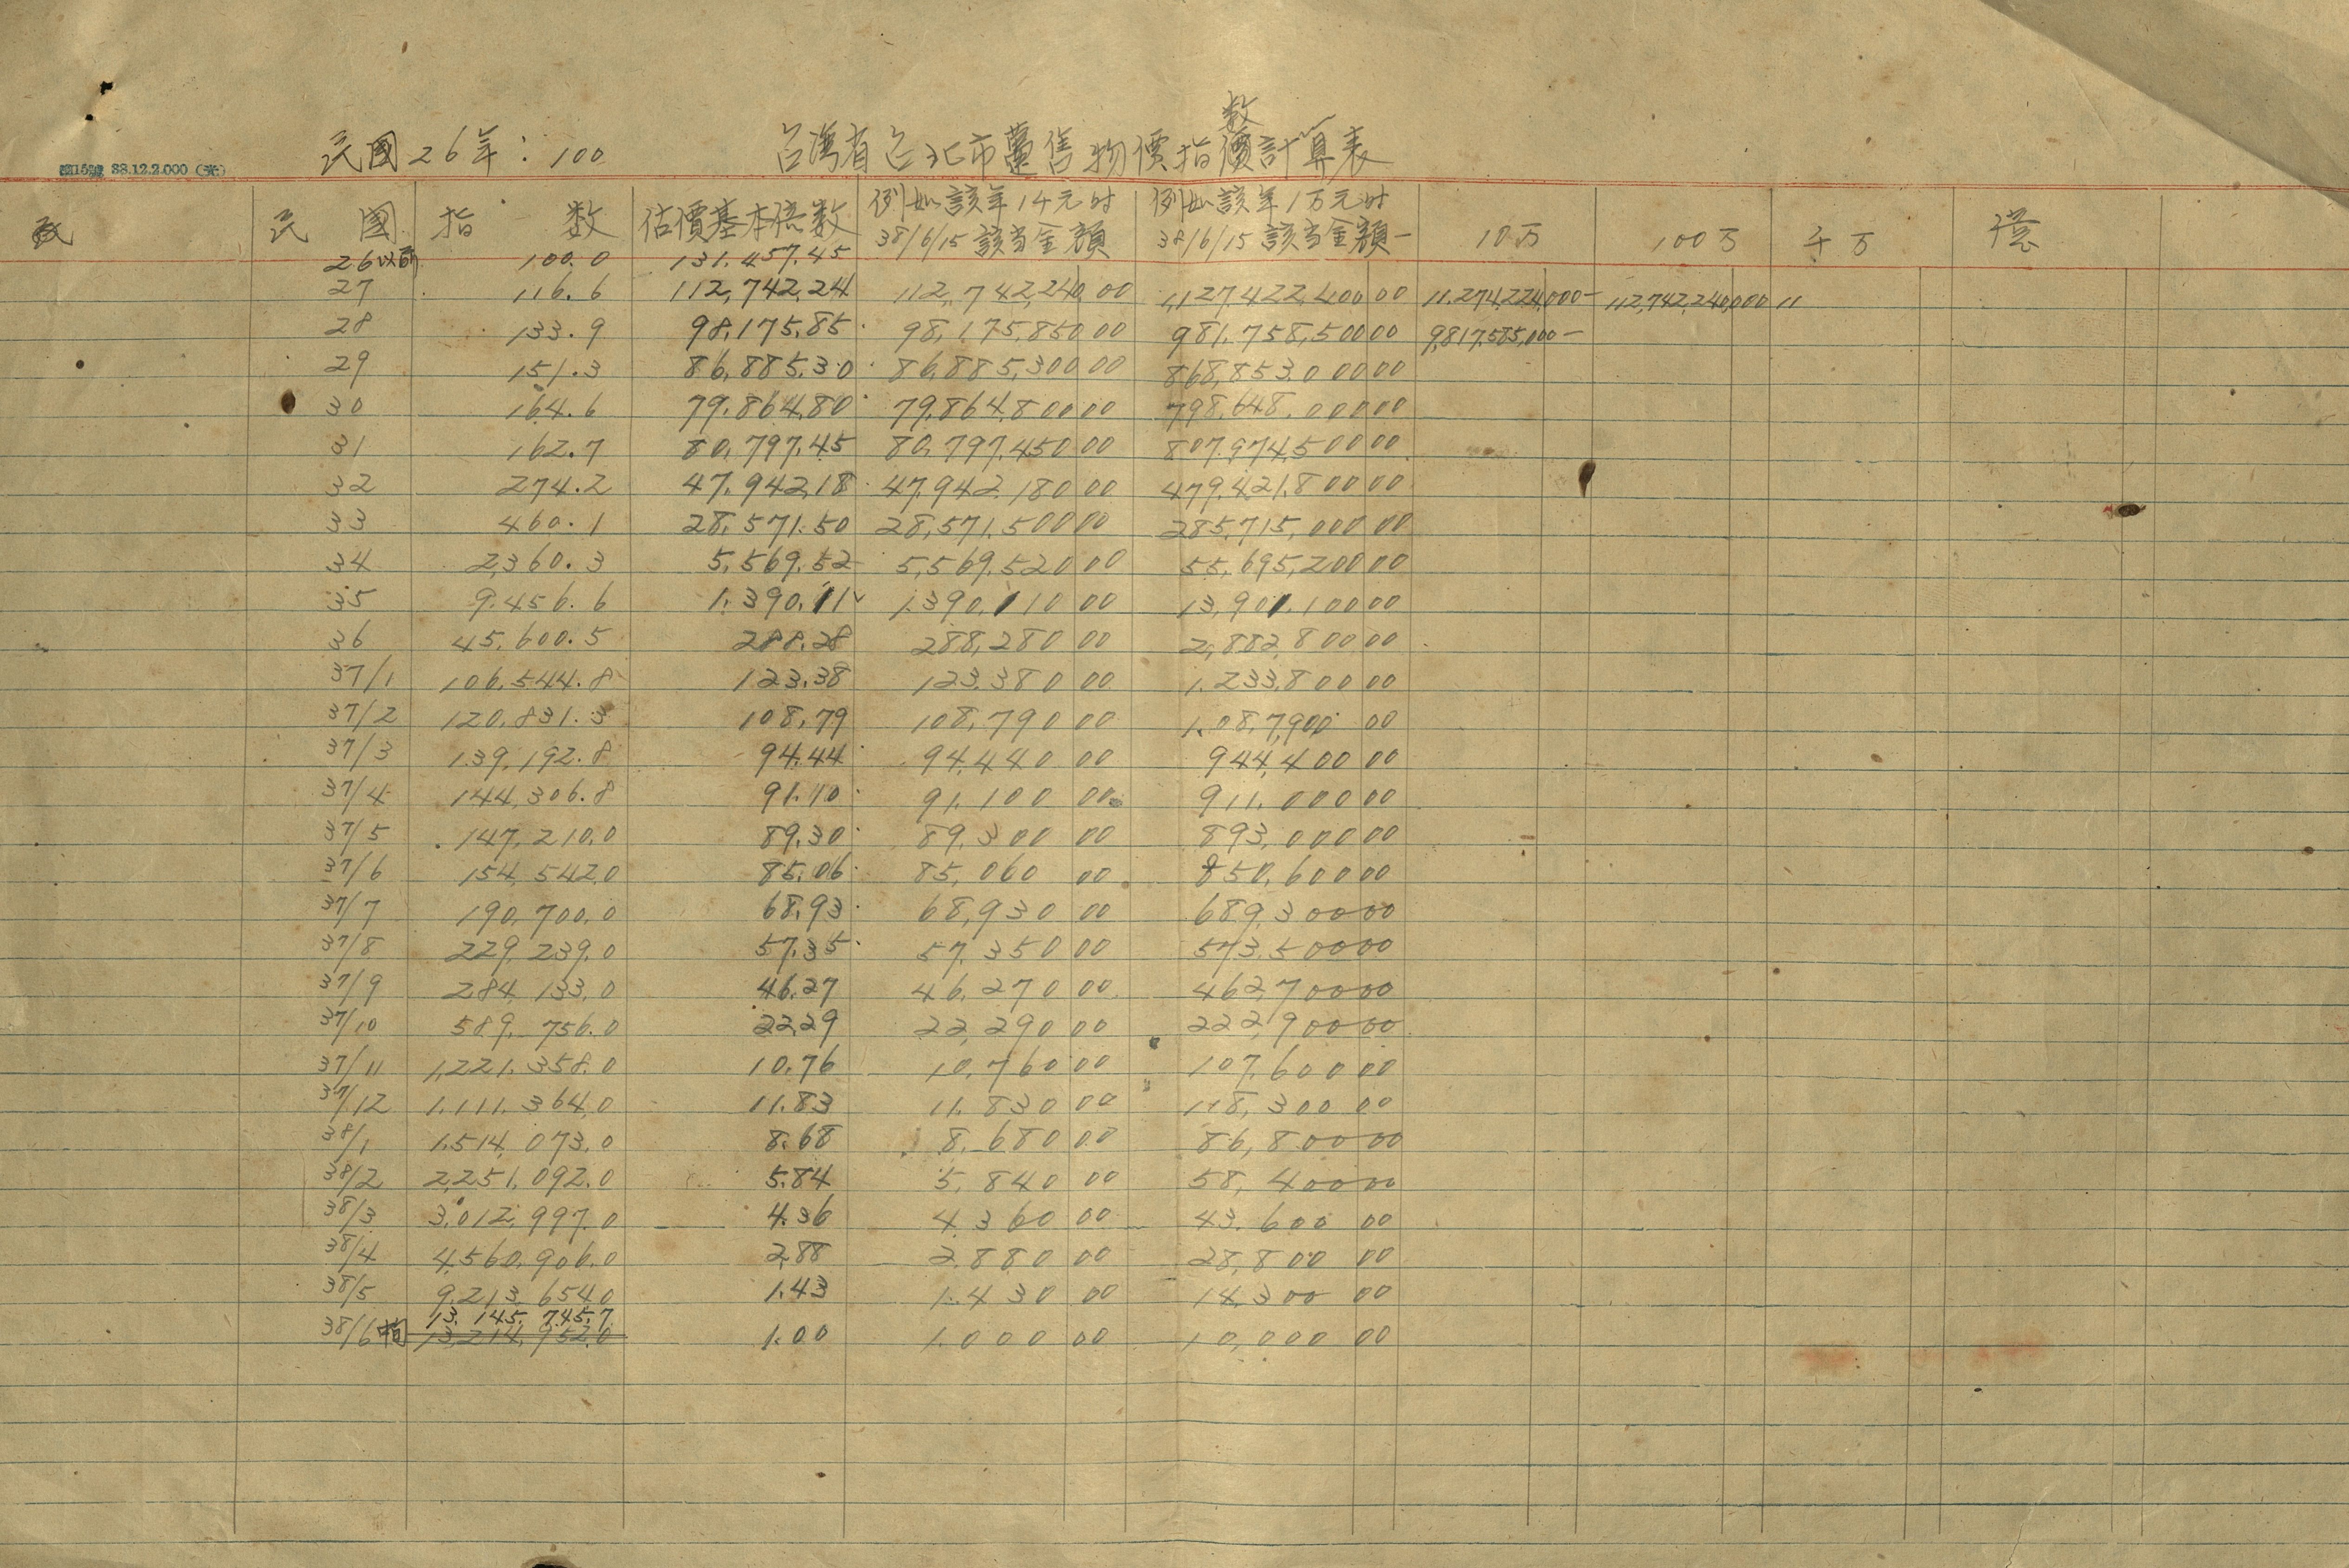 数
民國26年:100 台灣省台北市躉售物價指價計算表
第15號 38.12.2.000 (光)
民 國 指 数 估價基本倍数 例如該年1千元时 38/6/15 該当金額 例如該年1万元时 38/6/15 該当金額 10万 100万 千万
26以前 100.0 131.457.45
27 116.6 112,742,24 112,742,240 00 1,127,422,400 00 11.274,224,000- 112,742,240,000 11
28 133.9 98,175,85 98,175,850 00 981,758,500 00 9,817,585,000-
29 151.3 86,885.30 86,885,300 00 868,853.000 00
30 164.6 79.864,80 79,864,800 00 798,648.000 00
31 162.7 80,797,45 80,797,450 00 807,974,500 00
32 274.2 47.942,18 47,942,180 00 479,421,800 00
33 460.1 28,571.50 28,571,500 00 285,715,000 00
34 2,360.3 5,569.52 5,569,520 00 55,695,200 00
35 9.456.6 1.390.11 1.390,110 00 13,901,100 00
36 45,600.5 288.28 288,280 00 2,882,800 00
37/1 106,544.8 123.38 123,380 00 1.233,800 00
37/2 120,831.3 108,79 108,790 00 1.087,900 00
37/3 139,192.8 94.44 94,440 00 944,400 00
37/4 144,306.8 91.10 91,100 00 911.000 00
37/5 147,210.0 89,30 89,300 00 893,000 00
37/6 154,542.0 85.06 85,060 00 850,600 00
37/7 190,700.0 68,93 68,930 00 689,300 00
37/8 229,239.0 57.35 57,350 00 573,500 00
37/9 284,133.0 46.27 46,270 00 462,700 00
37/10 589,756.0 22.29 22,290 00 222,900 00
37/11 1,221.358.0 10.76 10,760 00 107,600 00
37/12 1.111.364.0 11.83 11.830 00 118,300 00
38/1 1.514,073.0 8.68 8,680 00 86,800 00
38/2 2,251,092.0 5.84 5,840 00 58,400 00
38/3 3.012,997.0 4.36 4,360 00 43.600 00
38/4 4,560,906.0 2.88 2.880 00 28,800 00
38/5 9,213,654.0 1.43 1.430 00 14,300 00
13,145,745.7
38/6 13,214,952.0 1.00 1.000 00 10,000 00